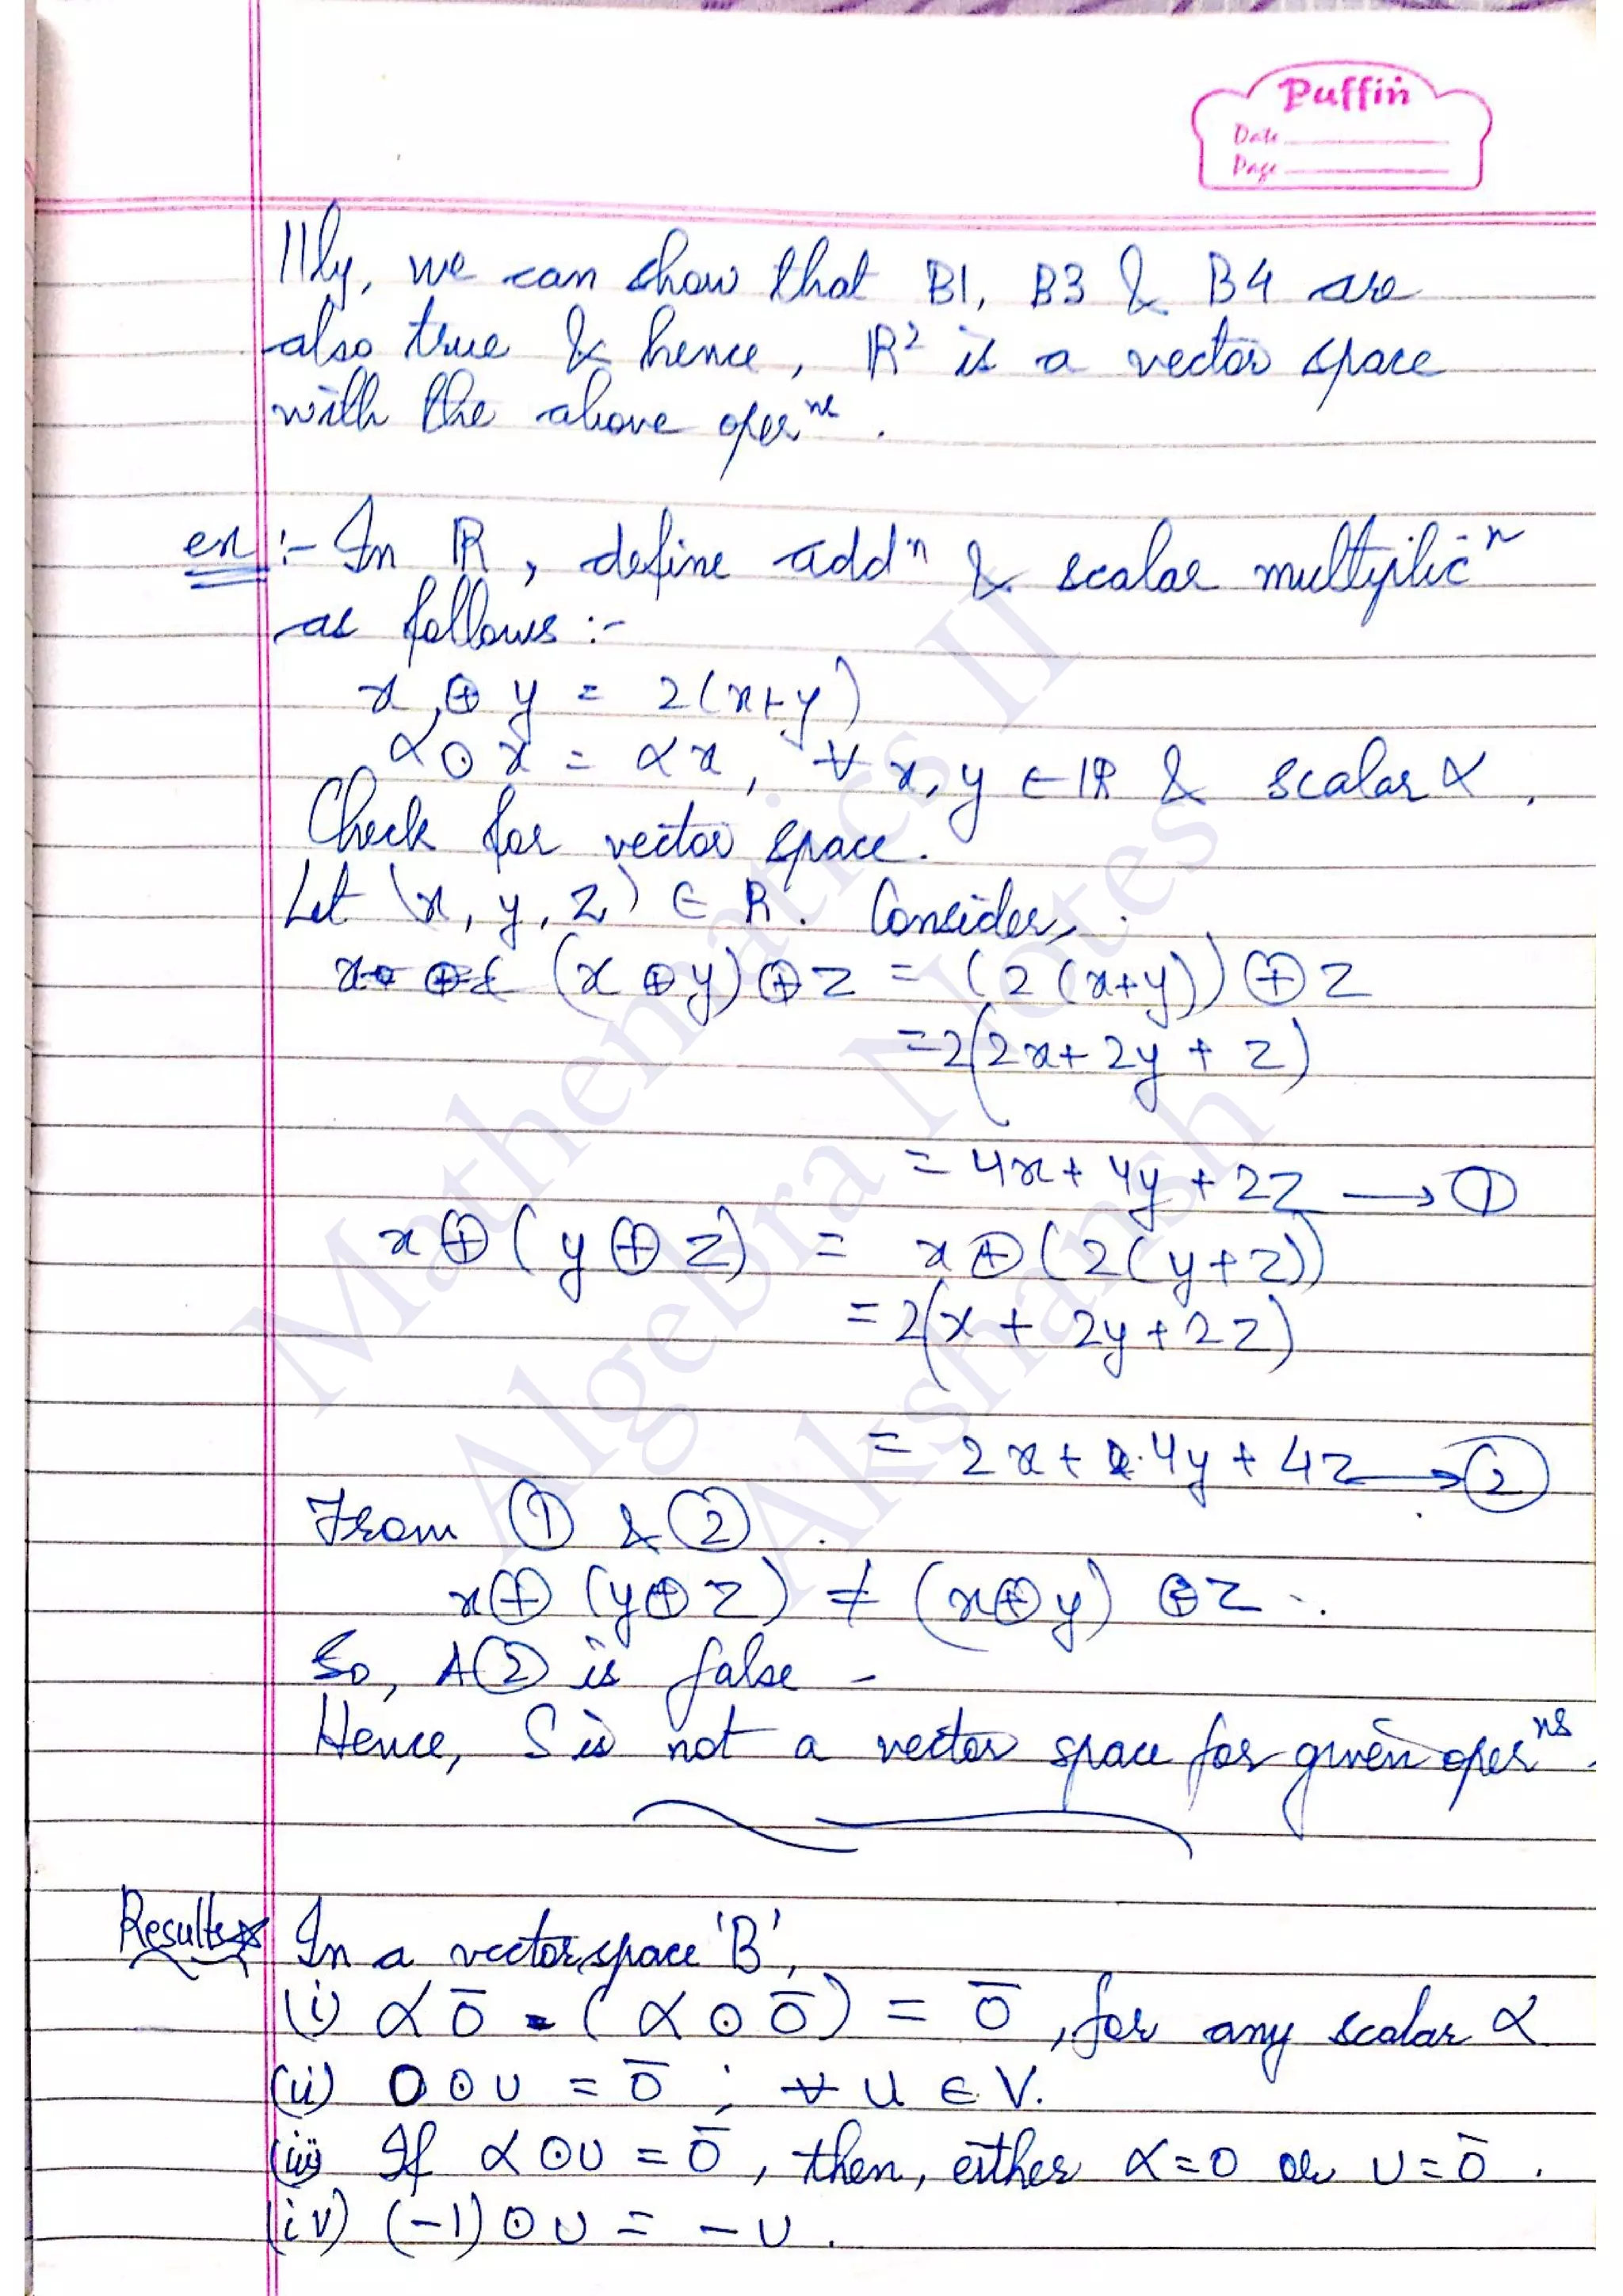 Puffin
Date
Page
IIlly, we can show that B1, B3 & B4 are
also true & hence, ℝ² is a vector space
with the above operⁿˢ.
ex :- In ℝ, define addⁿ & scalar multiplicⁿ
as follows :-
x ⊕ y = 2(x+y)
α⊙x = αx, ∀ x, y ∈ ℝ & scalar α.
Check for vector space.
Let (x, y, z) ∈ R. Consider,
(x ⊕ y) ⊕ z = (2(x+y)) ⊕ z
=2(2x+2y + z)
= 4x+4y+2z → ①
x⊕(y⊕z) = x⊕(2(y+z))
= 2(x + 2y+2z)
= 2x + 4y + 4z → ②
From ① & ②
x⊕(y⊕z) ≠ (x⊕y) ⊕z.
So, A② is false -
Hence, S is not a vector space for given operⁿˢ.
Results☆ In a vector space 'B',
(i) α0̄ = (α ⊙ 0̄) = 0̄, for any scalar α
(ii) 0 ⊙ u = 0̄ ; ∀ u ∈ V.
(iii) If α⊙u = 0̄, then, either α=0 or u=0̄.
(iv) (-1)⊙u = -u.
Mathematics II
Algebra Notes
Akshansh